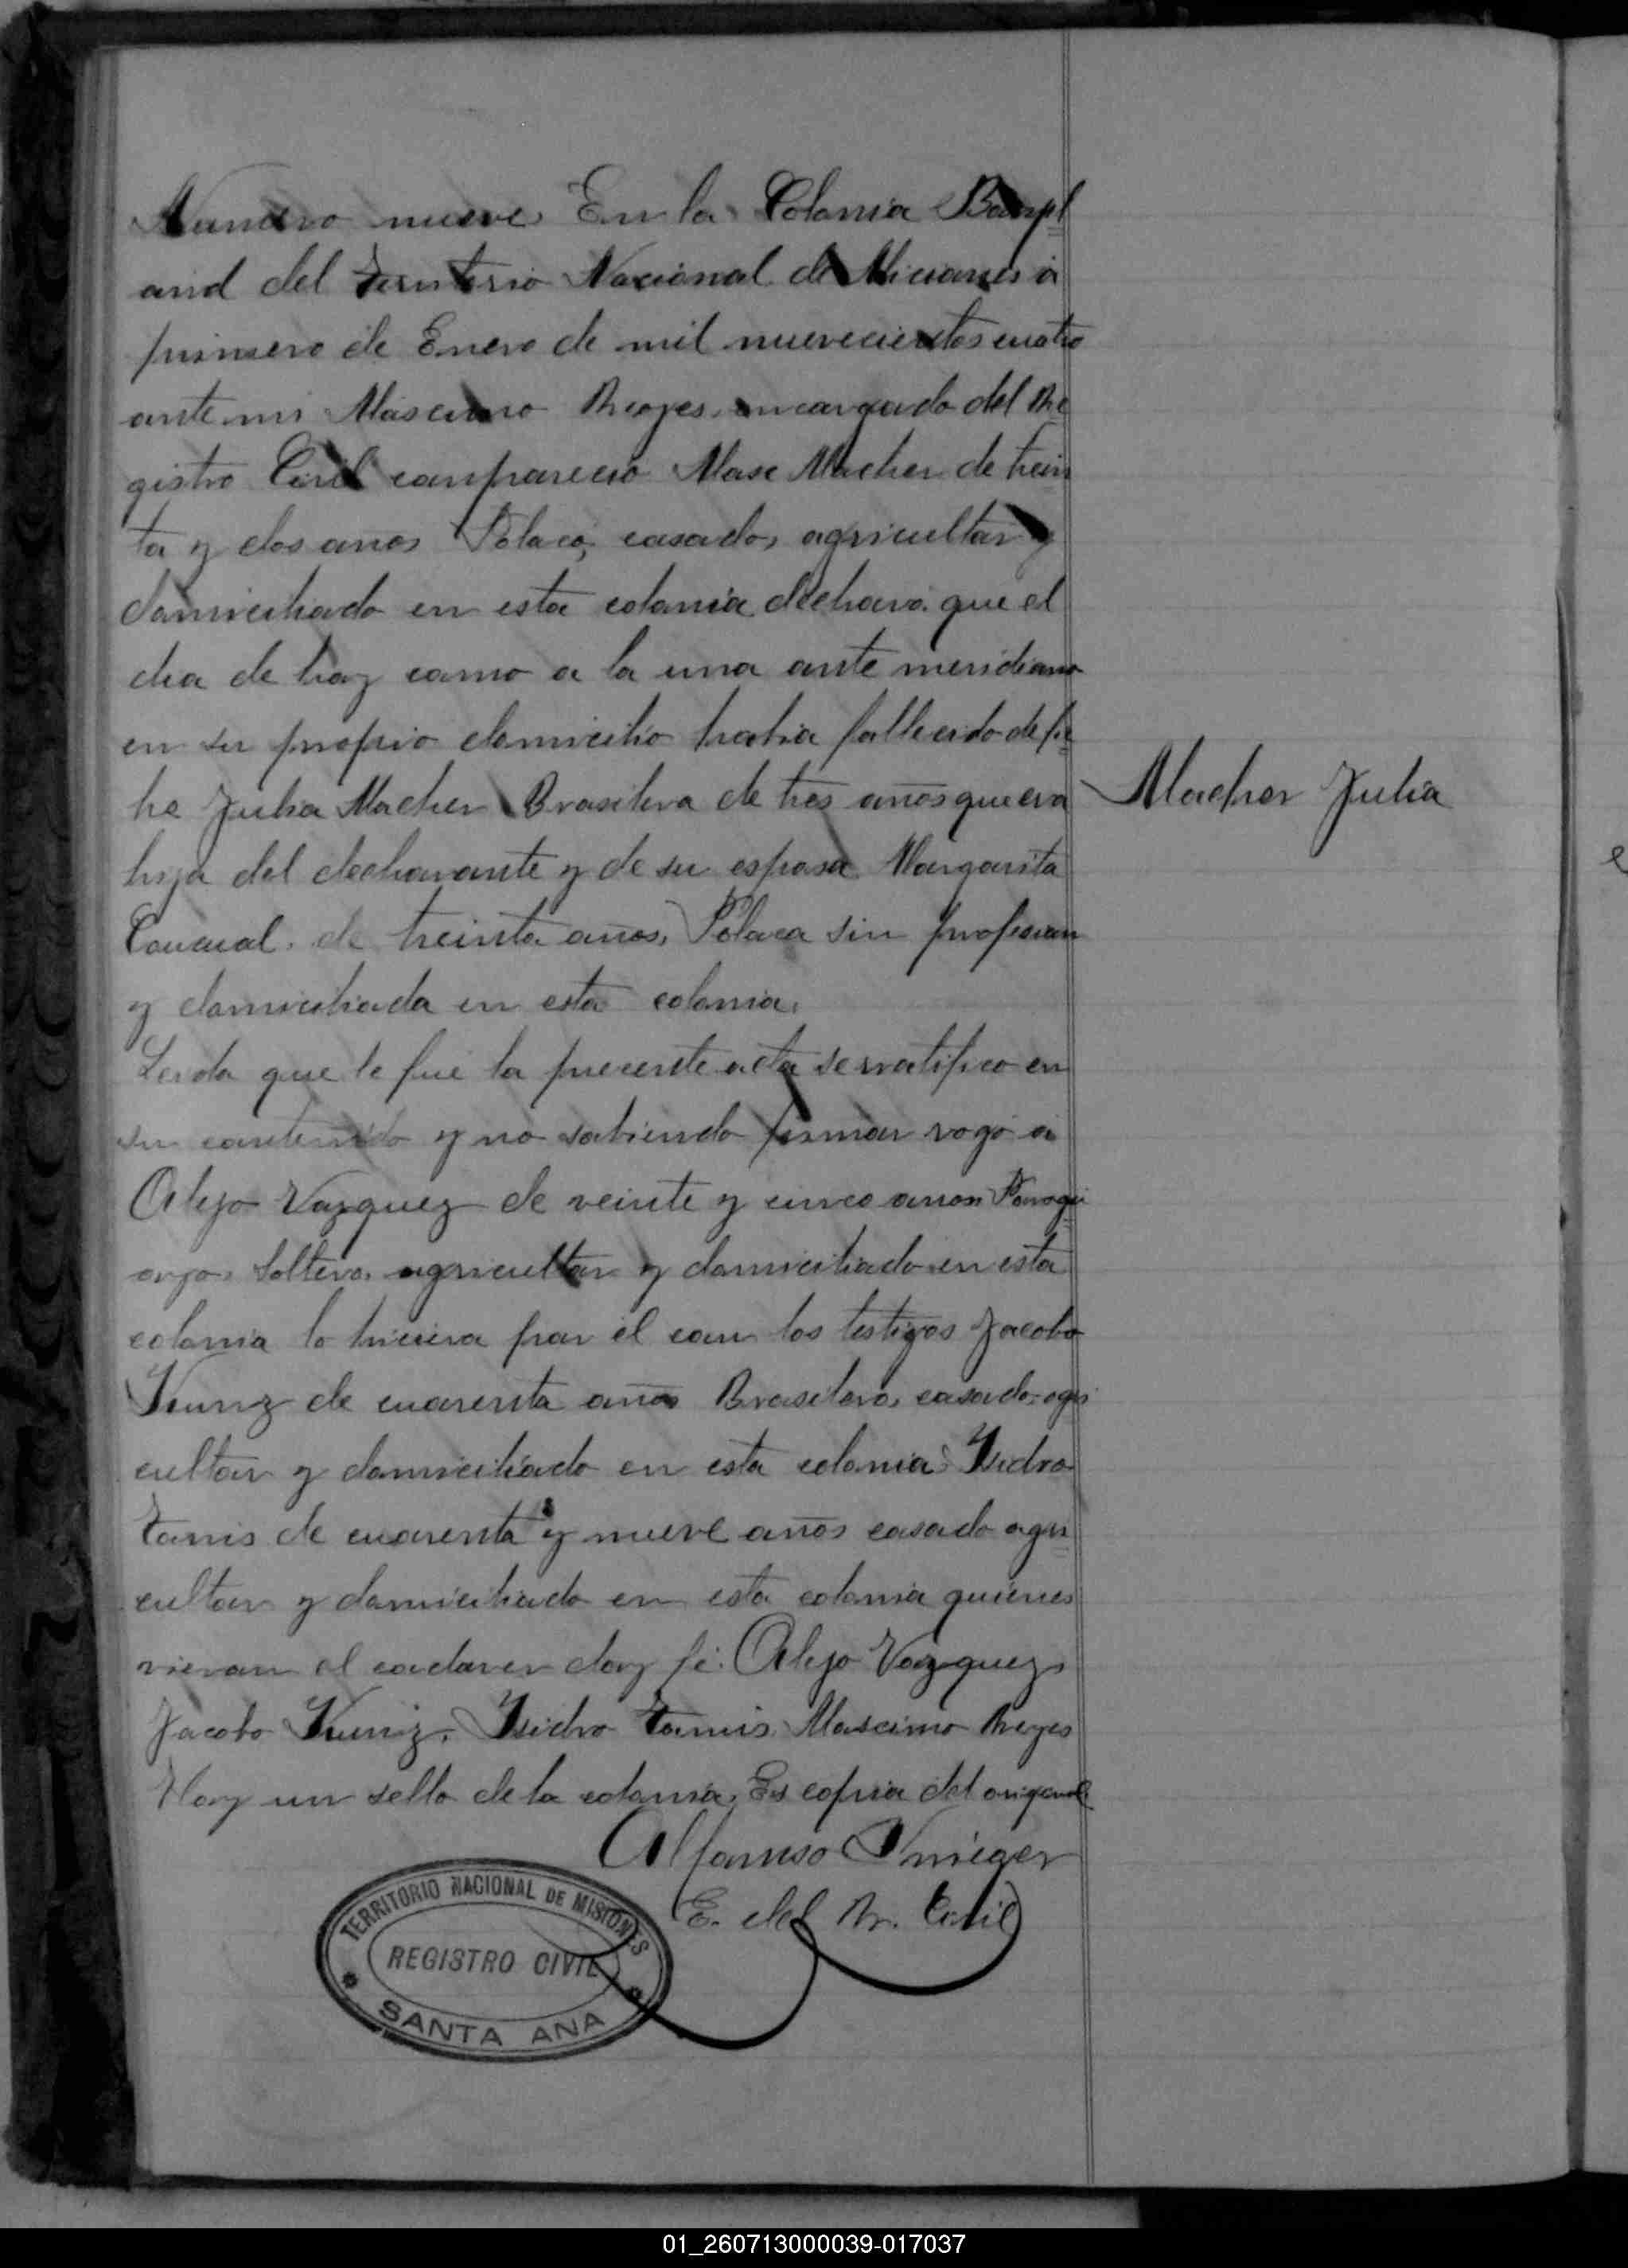 Numero nueve En la Colonia Bonpl
and del Territorio Nacional de Miciones á
primero de Enero de mil nuevecientos cuatro
ante mi Mascimo Reyes encargado del Re
gistro Civil comparecio Mase Macher de trein
ta y dos años Polaco, casado, agricultor y
domiciliado en esta colonia declara que el
dia de hoy como a la una ante meridiano
en su propio domicilio habia fallecido de fie
be Julia Macher Brasilera de tres años que era
hija del declarante y de su esposa Margarita
de treinta años, Polaca sin profesion
y domiciliada en esta colonia.
Leida que le fue la precente acta se ratifico en
su contenido y no sabiendo firmar rogó a
Alejo Vazquez de veinte y cinco anos Paragu
ayo, Soltero, agricultor y domiciliado en esta
colonia lo hiciera por él con los testigos Jacobo
Kunz de cuarenta años Brasilero, casado, agri
cultor y domiciliado en esta colonia Ysidro
Tamis de cuarenta y nueve años casado agri
cultor y domiciliado en esta colonia quienes
vieron el cadaver doy fé. Alejo Vazquez
Jacobo Kuniz. Ysidro Tamis Mascimo Reyes
Hay un sello de la colonia. Es copia del original
Alfonso
E. del R. Civil
Macher Julia
TERRITORIO NACIONAL DE MISIONES
REGISTRO CIVIL
SANTA ANA
01_260713000039-017037